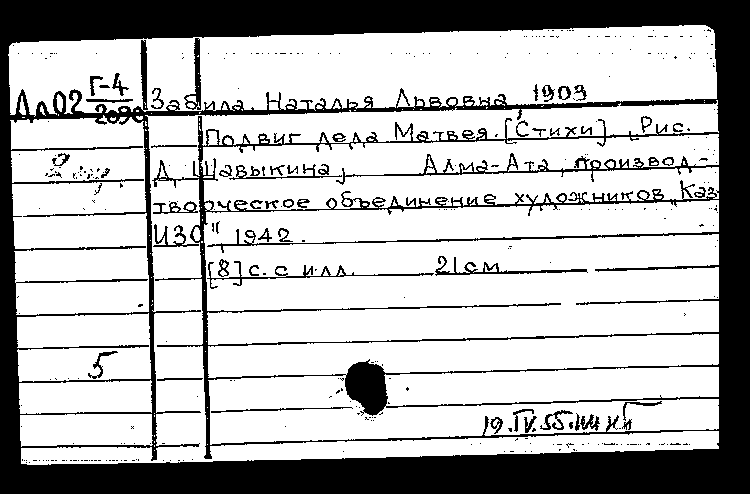 Дл02 Г-4/2090 Забила, Наталья Львовна, 1903
Подвиг деда Матвея. [Стихи]. Рис.
2 Д. Шавыкина, Алма-Ата, производ-
творческое объединение художников „Каз
ИЗО", 1942.
[8] с. с илл. 21 см
5
19.IV.55